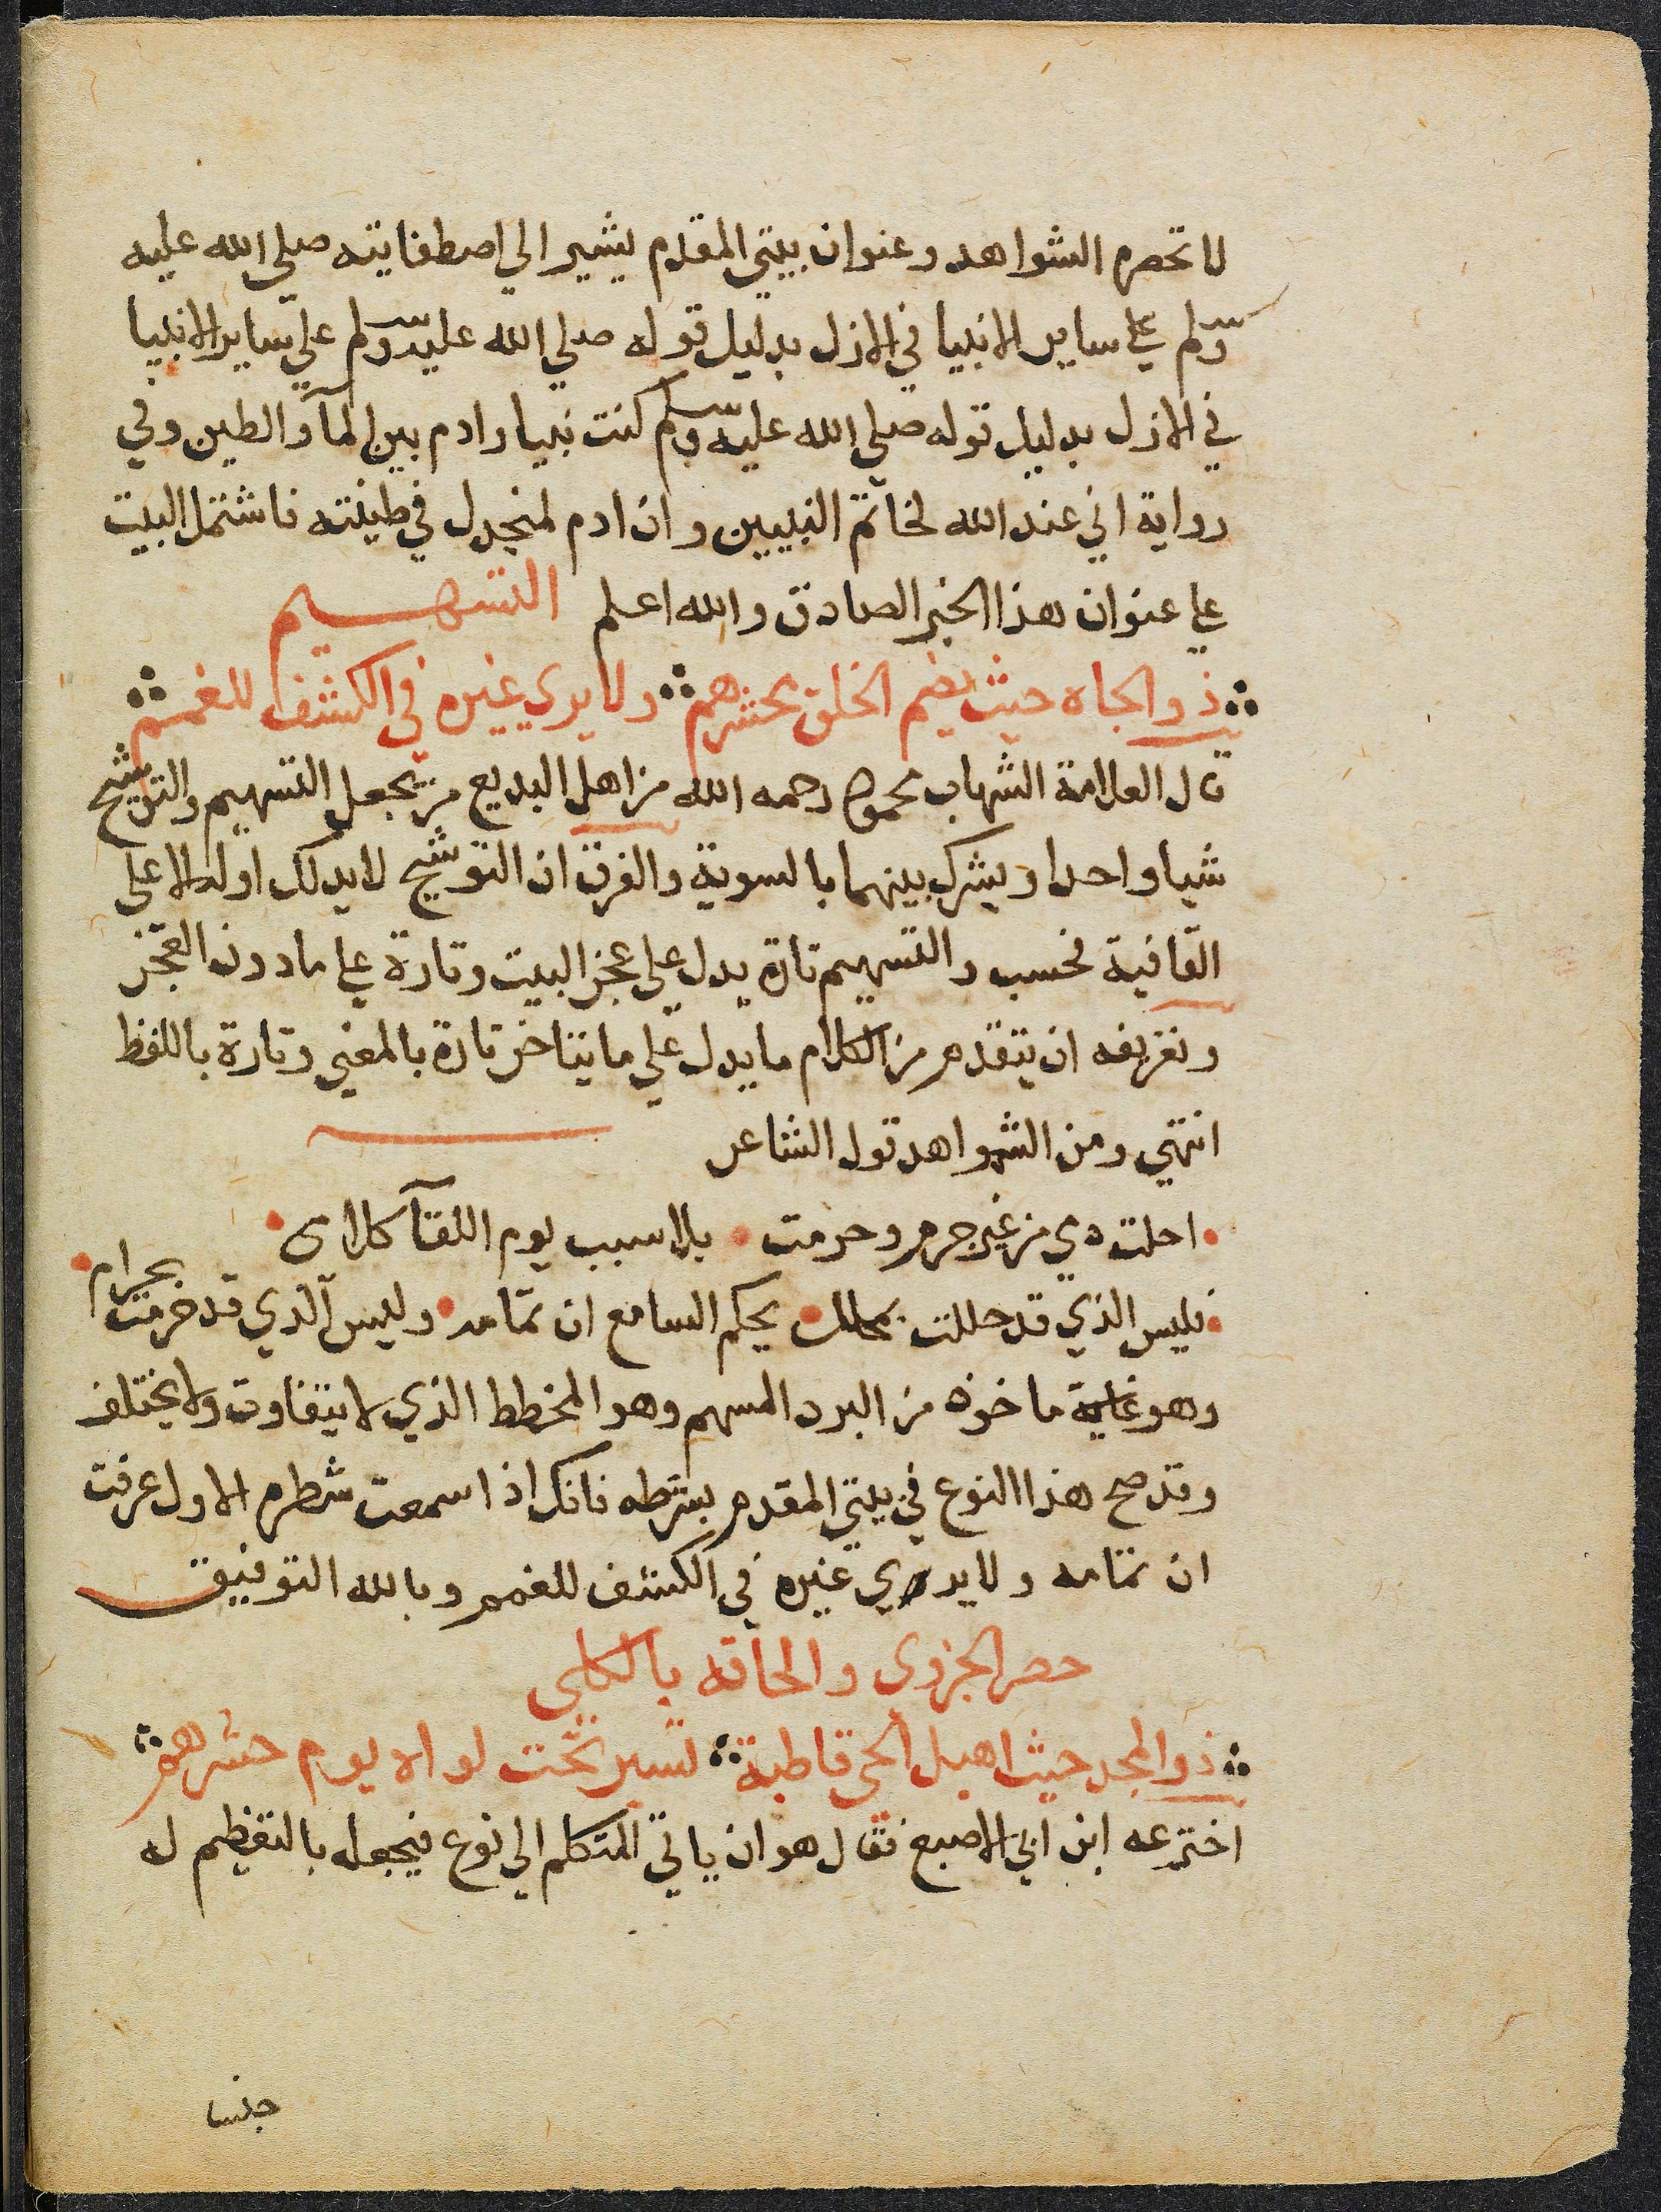 لا تحصره الشواهد وعنوان بيتي المقدم يشير الي اصطفايته صلي الله عليه
وسلم علي ساير الانبيا في الازل بدليل قوله صلي الله عليه وسلم علي ساير الانبيا
في الازل بدليل قوله صلي الله عليه وسلم كنت نبيا وادم بين المآ والطين وفي
رواية اني عند الله لخاتم النبيين وان ادم لمنجدل في طينته فاشتمل البيت
علي عنوان هذا الخبر الصادق والله اعلم التسهيم
ذو الجاه حيث يضم الخلق محشرهم ولا يري غيره في الكشف للغمم
قال العلامة الشهاب محمود رحمه الله من اهل البديع من يجعل التسهيم والتوشيح
شيا واحدا ويشرك بينهما بالسوية والفرق ان التوشيح لا يدلك اوله الا علي
القافية فحسب والتسهيم تارة يدل علي عجز البيت وتارة علي ما دون العجز
وتعريفه ان يتقدم من الكلام ما يدل علي ما يتاخر تارة بالمعني وتارة باللفظ
انتهي ومن الشواهد قول الشاعر
احلت دمي من غير جرم وحرمت بلا سبب يوم اللقآ كلامى
فليس الذي قد حللت بمحلل يحكم السامع ان تمامه وليس الذي قد حرمت بحرام
وهو ماخوذ من البرد المسهم وهو المخطط الذي لا يتفاوت ولا يختلف
وقد صح هذا النوع في بيتي المقدم بشرطه فانك اذا سمعت شطره الاول عرفت
ان تمامه ولا يري غيره في الكشف للغمم وبالله التوفيق
حصر الجزوى والحاقه بالكلي
ذو المجد حيث اهيل الحي قاطبة تسير تحت لواه يوم حشرهم
اخترعه ابن ابي الاصبع فقال هو ان ياتي المتكلم الي نوع فيجعله بالتعظيم له
جنسا